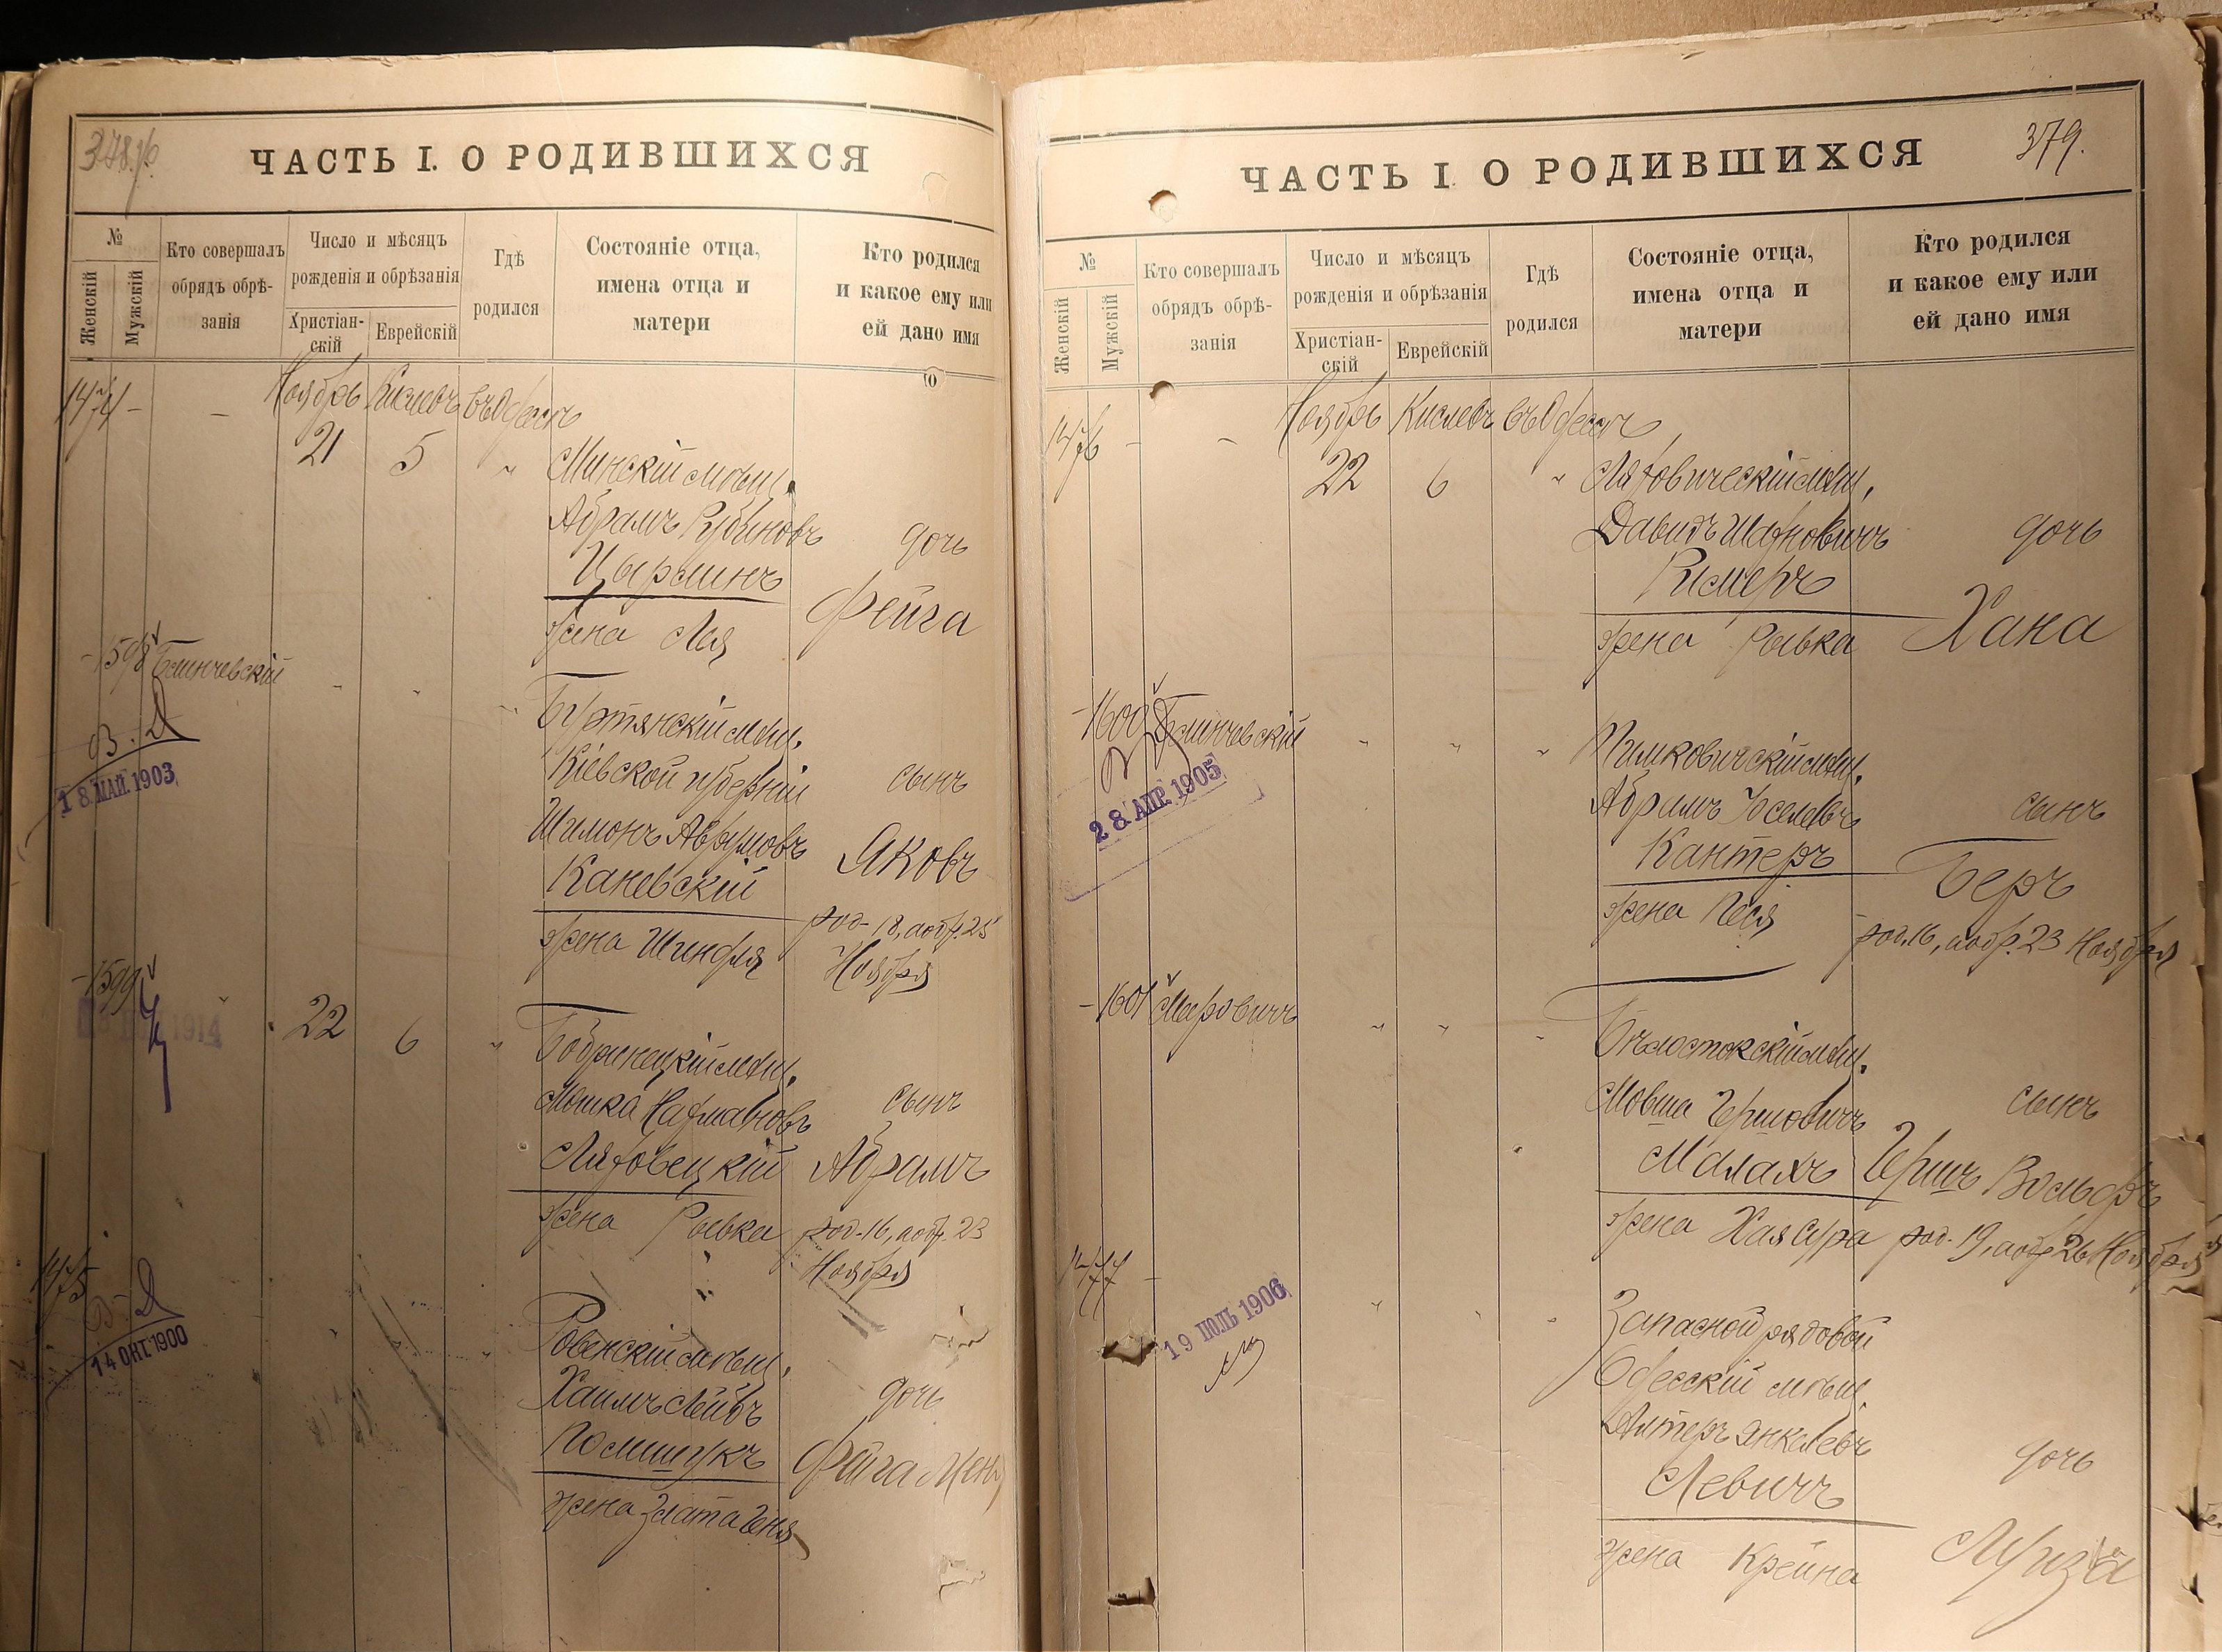 378.
ЧАСТЬ I. О РОДИВШИХСЯ
№
Женскій
Мужскій
Кто совершалъ
обрядъ обрѣ-
занія
Число и мѣсяцъ
рожденія и обрѣзанія
Христіан-
скій
Еврейскій
Гдѣ
родился
Состояніе отца,
имена отца и
матери
Кто родился
и какое ему или
ей дано имя
1474 - - Ноябрь Кислевъ въ Одессѣ
21 5 " Минскій мѣщ.
Абрамъ Рубиновъ
Цырлинъ
жена Лея
дочь
Фейга
-1598 Блинчевскій " " "
В. Д
18. МАЙ. 1903
мѣщ.
Кіевской губерніи
Шимонъ Аврумовъ
Каневскій
жена Шиндля
сынъ
Яковъ
род. 18, а обр. 25
Ноября
-1599
1914
22 6 " Бобринецкій мѣщ.
Мошка Нахмановъ
Ляховецкій
жена Рывка
сынъ
Абрамъ
род. 16, а обр. 23
Ноября
1475
В. Д
14 ОКТ. 1900
Ровенскій мѣщ.
Хаимъ Лейбъ
Полищукъ
жена Злата Геня
дочь
Фейга
379.
ЧАСТЬ I. О РОДИВШИХСЯ
№
Женскій
Мужскій
Кто совершалъ
обрядъ обрѣ-
занія
Число и мѣсяцъ
рожденія и обрѣзанія
Христіан-
скій
Еврейскій
Гдѣ
родился
Состояніе отца,
имена отца и
матери
Кто родился
и какое ему или
ей дано имя
1476 - - Ноябрь Кислевъ въ Одессѣ
22 6 " Ляховическій мѣщ.
Давидъ
жена Рывка
дочь
Хана
-1600 Блинчевскій " " "
28. АПР. 1905
Тимковичскій мѣщ.
Абрамъ Іоселевъ
Кантеръ
жена Песя
сынъ
Беръ
род. 16, а обр. 23 Ноября
-1601 Меровичъ " " "
Бѣлостокскій мѣщ.
Мовша Гершовичъ
Малахъ
жена Хая Сура
сынъ
Гершъ Вольфъ
род. 19, а обр. 26 Ноября
1477 -
19 ІЮЛЬ 1906
Запасной рядовой
Одесскій мѣщ.
Алтеръ Янкелевъ
Левичъ
жена Крейна
дочь
Луиза